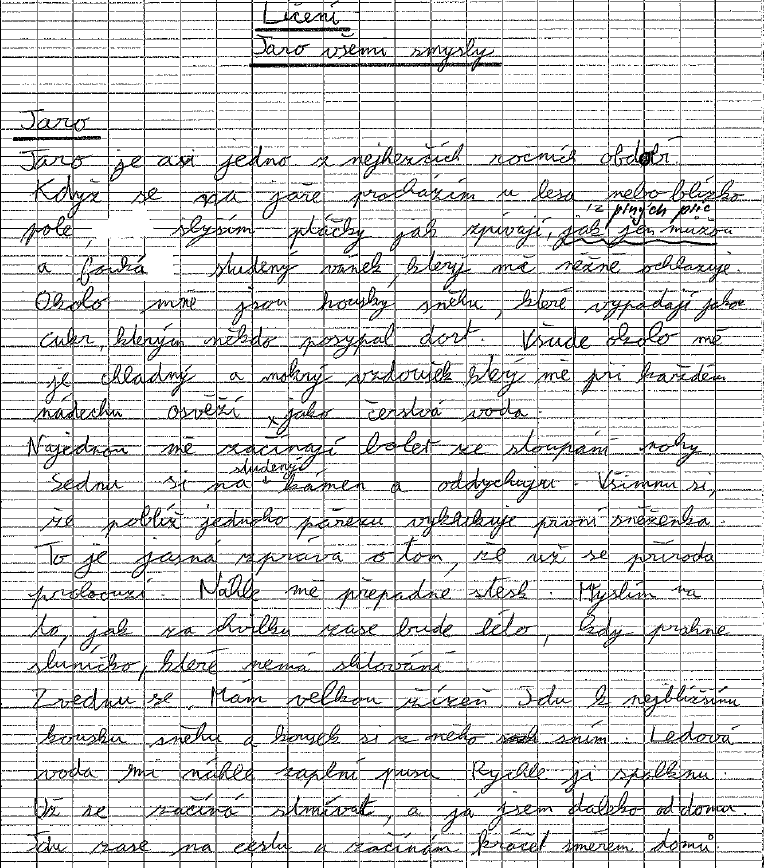 Líčení
Jaro všemi smysly
Jaro
Jaro je asi jedno z nejhezčích rocních období.
Když se na jaře procházím u lesa nebo blízko
iz plných plic
pole, slyším ptáčky jak zpívají, jak jen mužou
a fouká studený vánek, který mě něžně ochlazuje.
Okolo mně jsou kousky sněhu, které vypadají jako
cukr, kterým někdo posypal dort. Všude okolo mě
je chladný a mokrý vzdoušek který mě při každém
nádechu osvěží jako čerstvá voda.
Najednou mě začínají bolet ze stoupání nohy
studený
Sednu si na kámen a oddychuju. Všimnu si,
že poblíž jednoho pařezu vykukuje první sněženka.
To je jasná zpráva o tom, že už se příroda
probouzí. Náhle mě přepadne stesk. Myslím na
to, jak za chvilku zase bude léto, kdy prahne
sluníčko, které nemá slitování.
Zvednu se. Mám velkou žízeň Jdu k nejbližšímu
kousku sněhu a kousek si z neho sním. Ledová
voda mi náhle zaplní pusu Rychle ji spolknu.
Už se začíná stmívat, a já jsem daleko od domu.
Jdu zase na cestu a začínám kráčet směrem domů.